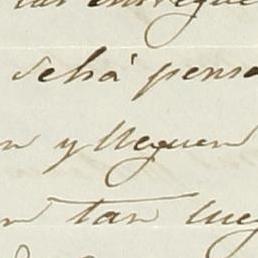 las entregue
dehá pens
n y lleguen
n tan lueg